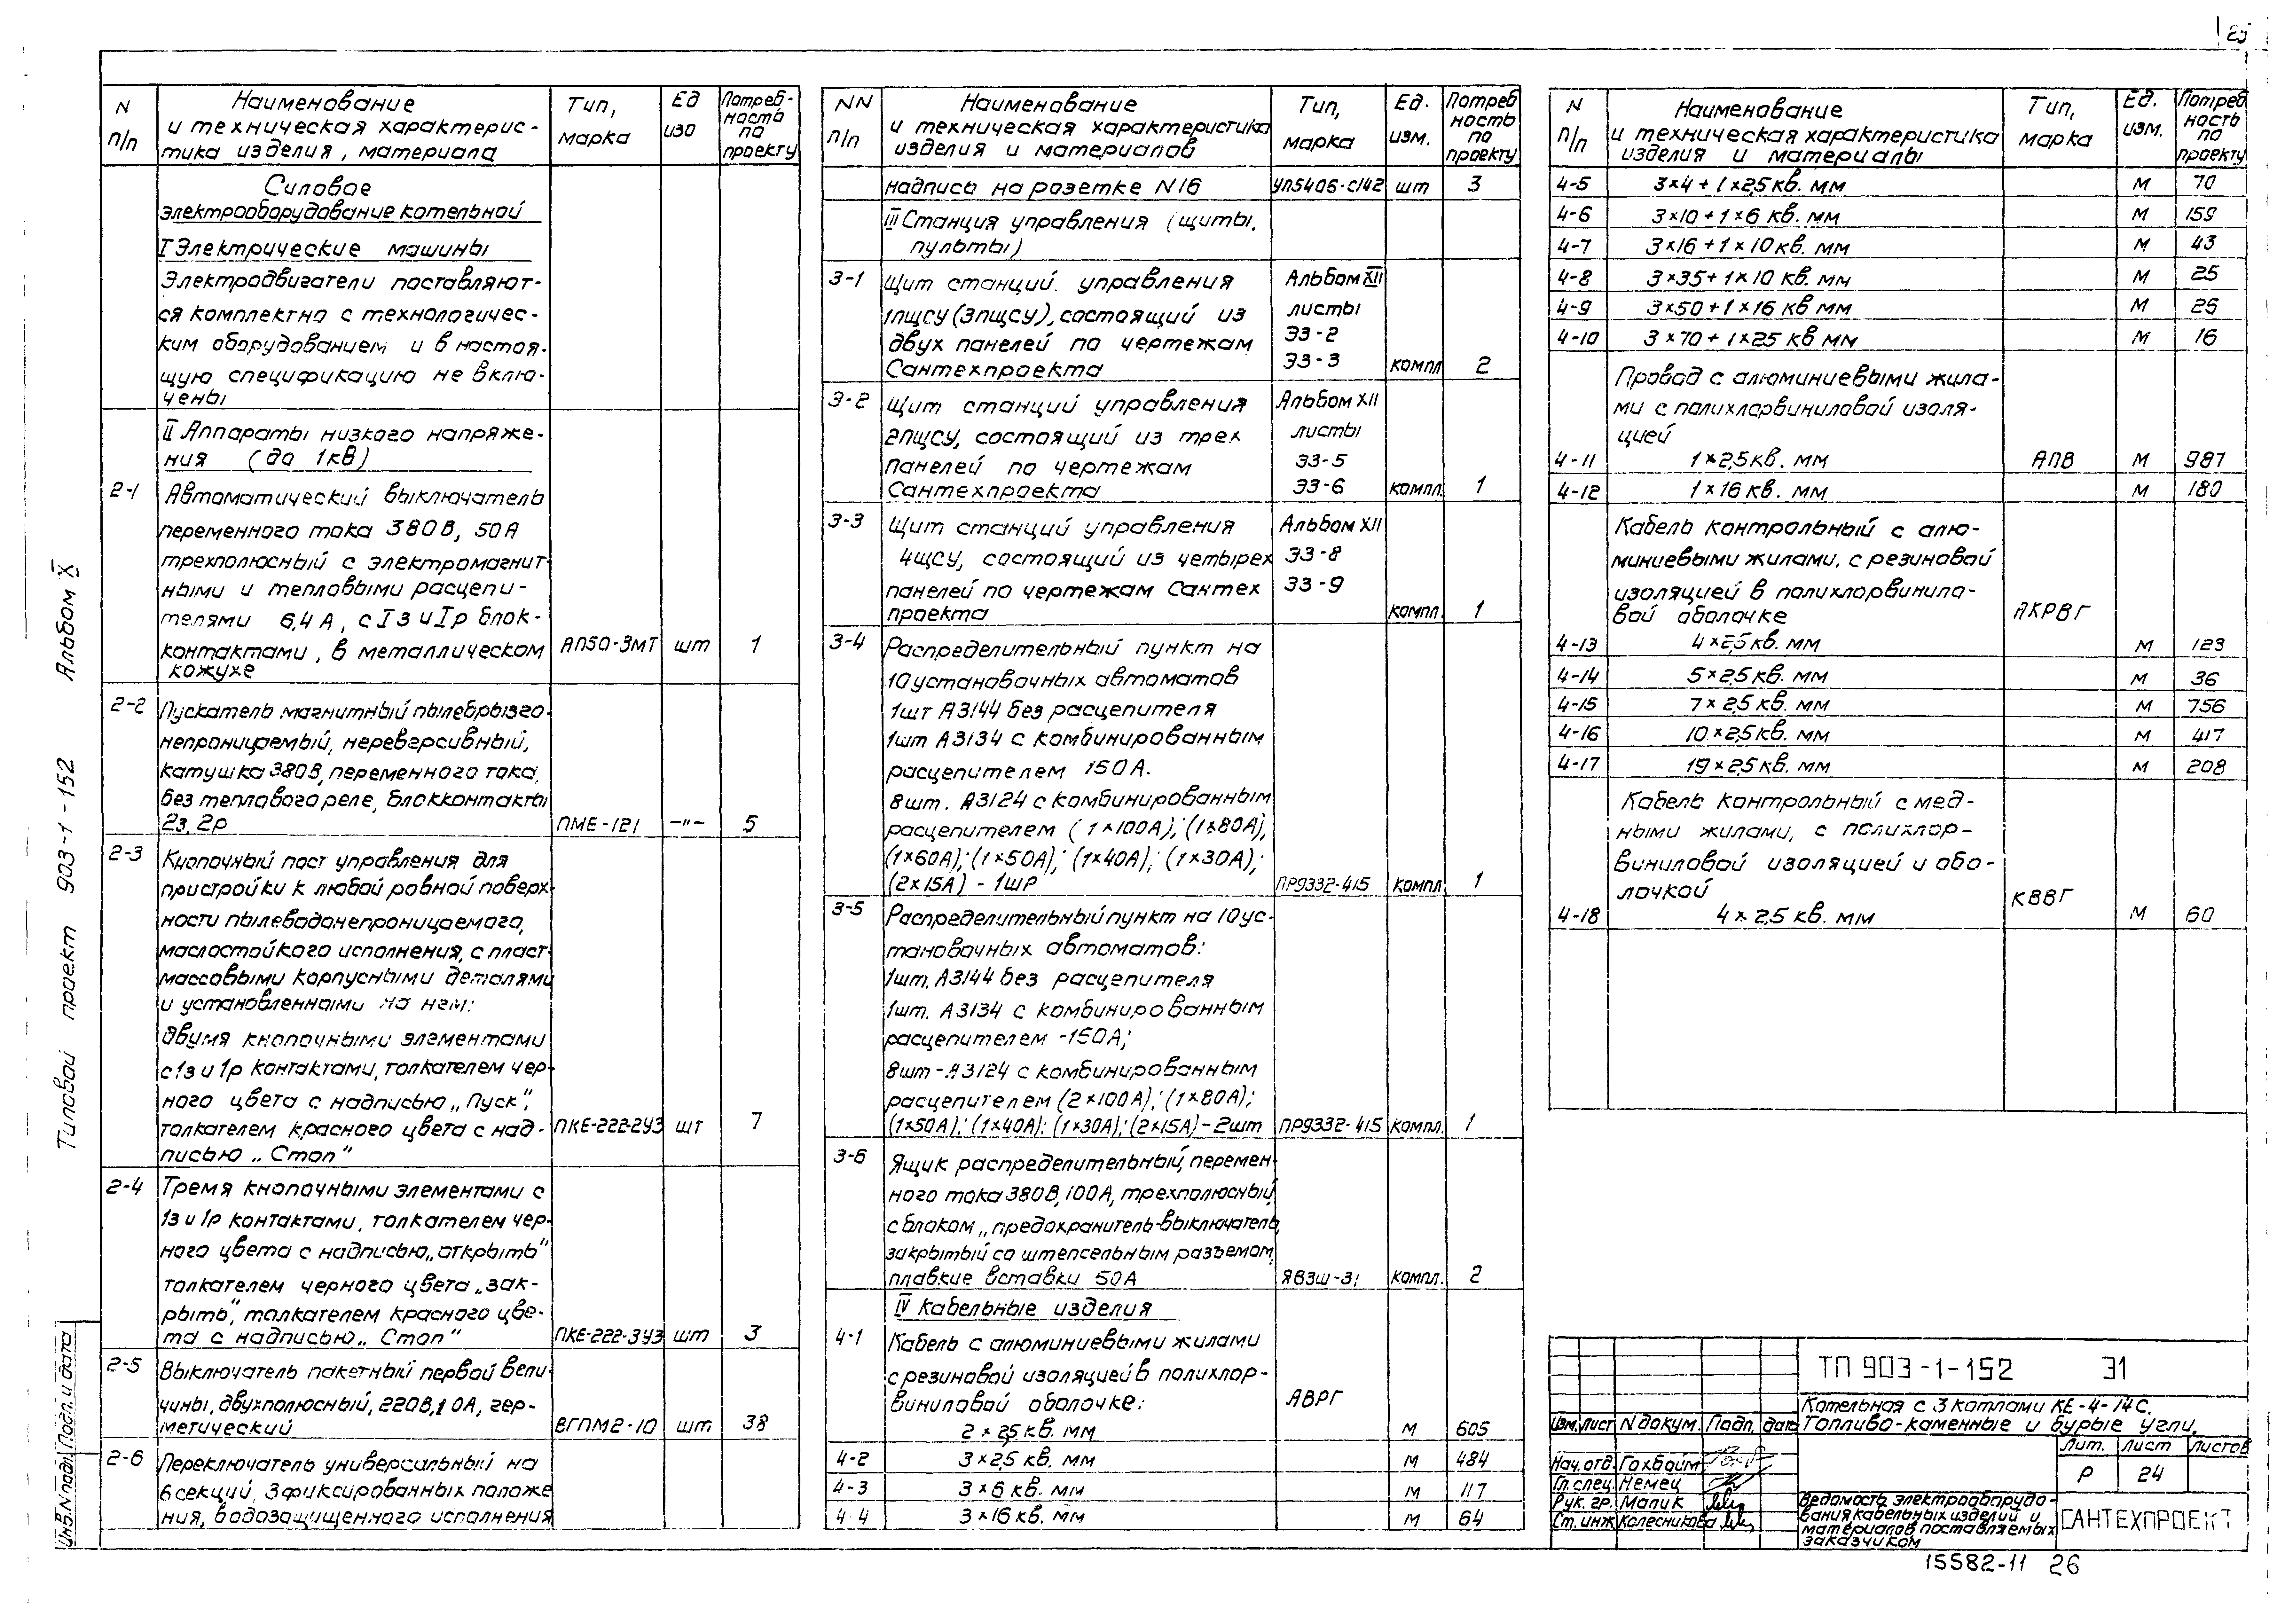 25
Типовой проект 903-1-152 Альбом X
Инв.N подл. Подл. и дата
N п/п
Наименование и техническая характерис-
тика изделия, материала
Тип, марка
Ед изо
Потреб-
ность по проекту
Силовое
электрооборудование котельной
I Электрические машины
Электродвигатели поставляют-
ся комплектно с технологичес-
ким оборудованием и в настоя-
щую спецификацию не вклю-
чены
II Аппараты низкого напряже-
ния (до 1кВ)
2-1 Автоматический выключатель
переменного тока 380В, 50А
трехполюсный с электромагнит-
ными и тепловыми расцепи-
телями 6,4А, с Iз и Iр блок-
контактами, в металлическом АП50-3МТ шт 1
кожухе
2-2 Пускатель магнитный пылебрызго-
непроницаемый, нереверсивный,
катушка 380В, переменного тока,
без теплового реле, блокконтакты
2з, 2р ПМЕ-121 -"- 5
2-3 Кнопочный пост управления для
пристройки к любой ровной поверх-
ности пылеводонепроницаемого,
маслостойкого исполнения, с пласт-
массовыми корпусными деталями
и установленными на нем:
двумя кнопочными элементами
с 1з и 1р контактами, толкателем чер-
ного цвета с надписью „Пуск",
толкателем красного цвета с над- ПКЕ-222-2У3 шт 7
писью „Стоп"
2-4 Тремя кнопочными элементами с
1з и 1р контактами, толкателем чер-
ного цвета с надписью „открыть"
толкателем черного цвета „зак-
рыть", толкателем красного цве-
та с надписью „Стоп" ПКЕ-222-3У3 шт 3
2-5 Выключатель пакетный первой вели-
чины, двухполюсный, 220В, 10А, гер-
метический ВГПМ2-10 шт 38
2-6 Переключатель универсальный на
6 секций, 3 фиксированных положе
ния, водозащищенного исполнения
NN п/п
Наименование
и техническая характеристика
изделия и материалов
Тип, марка
Ед. изм.
Потреб
ность по проекту
надпись на розетке N16 УП5406-С142 шт 3
III Станция управления (щиты,
пульты)
3-1 Щит станций управления Альбом XII
1ПЩСУ (3ПЩСУ), состоящий из листы
двух панелей по чертежам ЭЗ-2
Сантехпроекта ЭЗ-3 компл 2
3-2 Щит станций управления Альбом XII
2ПЩСУ, состоящий из трех листы
панелей по чертежам ЭЗ-5
Сантехпроекта ЭЗ-6 компл. 1
3-3 Щит станций управления Альбом XII
4ЩСУ, состоящий из четырех ЭЗ-8
панелей по чертежам Сантех ЭЗ-9
проекта компл. 1
3-4 Распределительный пункт на
10 установочных автоматов
1шт А3144 без расцепителя
1шт А3134 с комбинированным
расцепителем 150А.
8шт. А3124 с комбинированным
расцепителем (1×100А); (1×80А);
(1×60А); (1×50А); (1×40А); (1×30А);
(2×15А) - 1шр ПР9332-415 компл 1
3-5 Распределительный пункт на 10 ус-
тановочных автоматов:
1шт. А3144 без расцепителя
1шт. А3134 с комбинированным
расцепителем -150А;
8шт - А3124 с комбинированным
расцепителем (2×100А); (1×80А);
(1×50А); (1×40А); (1×30А); (2×15А) - 2шт ПР9332-415 компл. 1
3-6 Ящик распределительный, перемен-
ного тока 380В, 100А, трехполюсный,
с блоком „предохранитель-выключатель,
закрытый со штепсельным разъемом,
плавкие вставки 50А ЯВЗШ-31 компл. 2
IV Кабельные изделия
4-1 Кабель с алюминиевыми жилами
с резиновой изоляцией в полихлор-
виниловой оболочке: АВРГ
2×2,5 кв. мм м 605
4-2 3×2,5 кв. мм м 484
4-3 3×6 кв. мм м 117
4 4 3×16 кв. мм м 64
N п/п
Наименование
и техническая характеристика
изделия и материалы
Тип, марка
Ед. изм.
Потреб
ность по проекту
4-5 3×4 + 1×2,5 кв. мм м 70
4-6 3×10 + 1×6 кв. мм м 159
4-7 3×16 + 1×10 кв. мм м 43
4-8 3×35 + 1×10 кв. мм м 25
4-9 3×50 + 1×16 кв мм м 25
4-10 3×70 + 1×25 кв мм м 16
Провод с алюминиевыми жила-
ми с полихлорвиниловой изоля-
цией
4-11 1×2,5 кв. мм АПВ м 987
4-12 1×16 кв. мм м 180
Кабель контрольный с алю-
миниевыми жилами, с резиновой
изоляцией в полихлорвинило-
вой оболочке АКРВГ
4-13 4×2,5 кв. мм м 123
4-14 5×2,5 кв. мм м 36
4-15 7×2,5 кв. мм м 756
4-16 10×2,5 кв. мм м 417
4-17 19×2,5 кв. мм м 208
Кабель контрольный с мед-
ными жилами, с полихлор-
виниловой изоляцией и обо-
лочкой КВВГ
4-18 4×2,5 кв. мм м 60
ТП 903-1-152 Э1
Котельная с 3 котлами КЕ-4-14С.
Топливо-каменные и бурые угли.
Изм. Лист N докум. Подп. дата
Лит. Лист Листов
Р 24
Нач. отд. Гохбойм
Гл. спец. Немец
Рук. гр. Малик
Ст. инж. Колесникова
Ведомость электрооборудо-
вания кабельных изделий и
материалов поставляемых
заказчиком
САНТЕХПРОЕКТ
15582-11 26